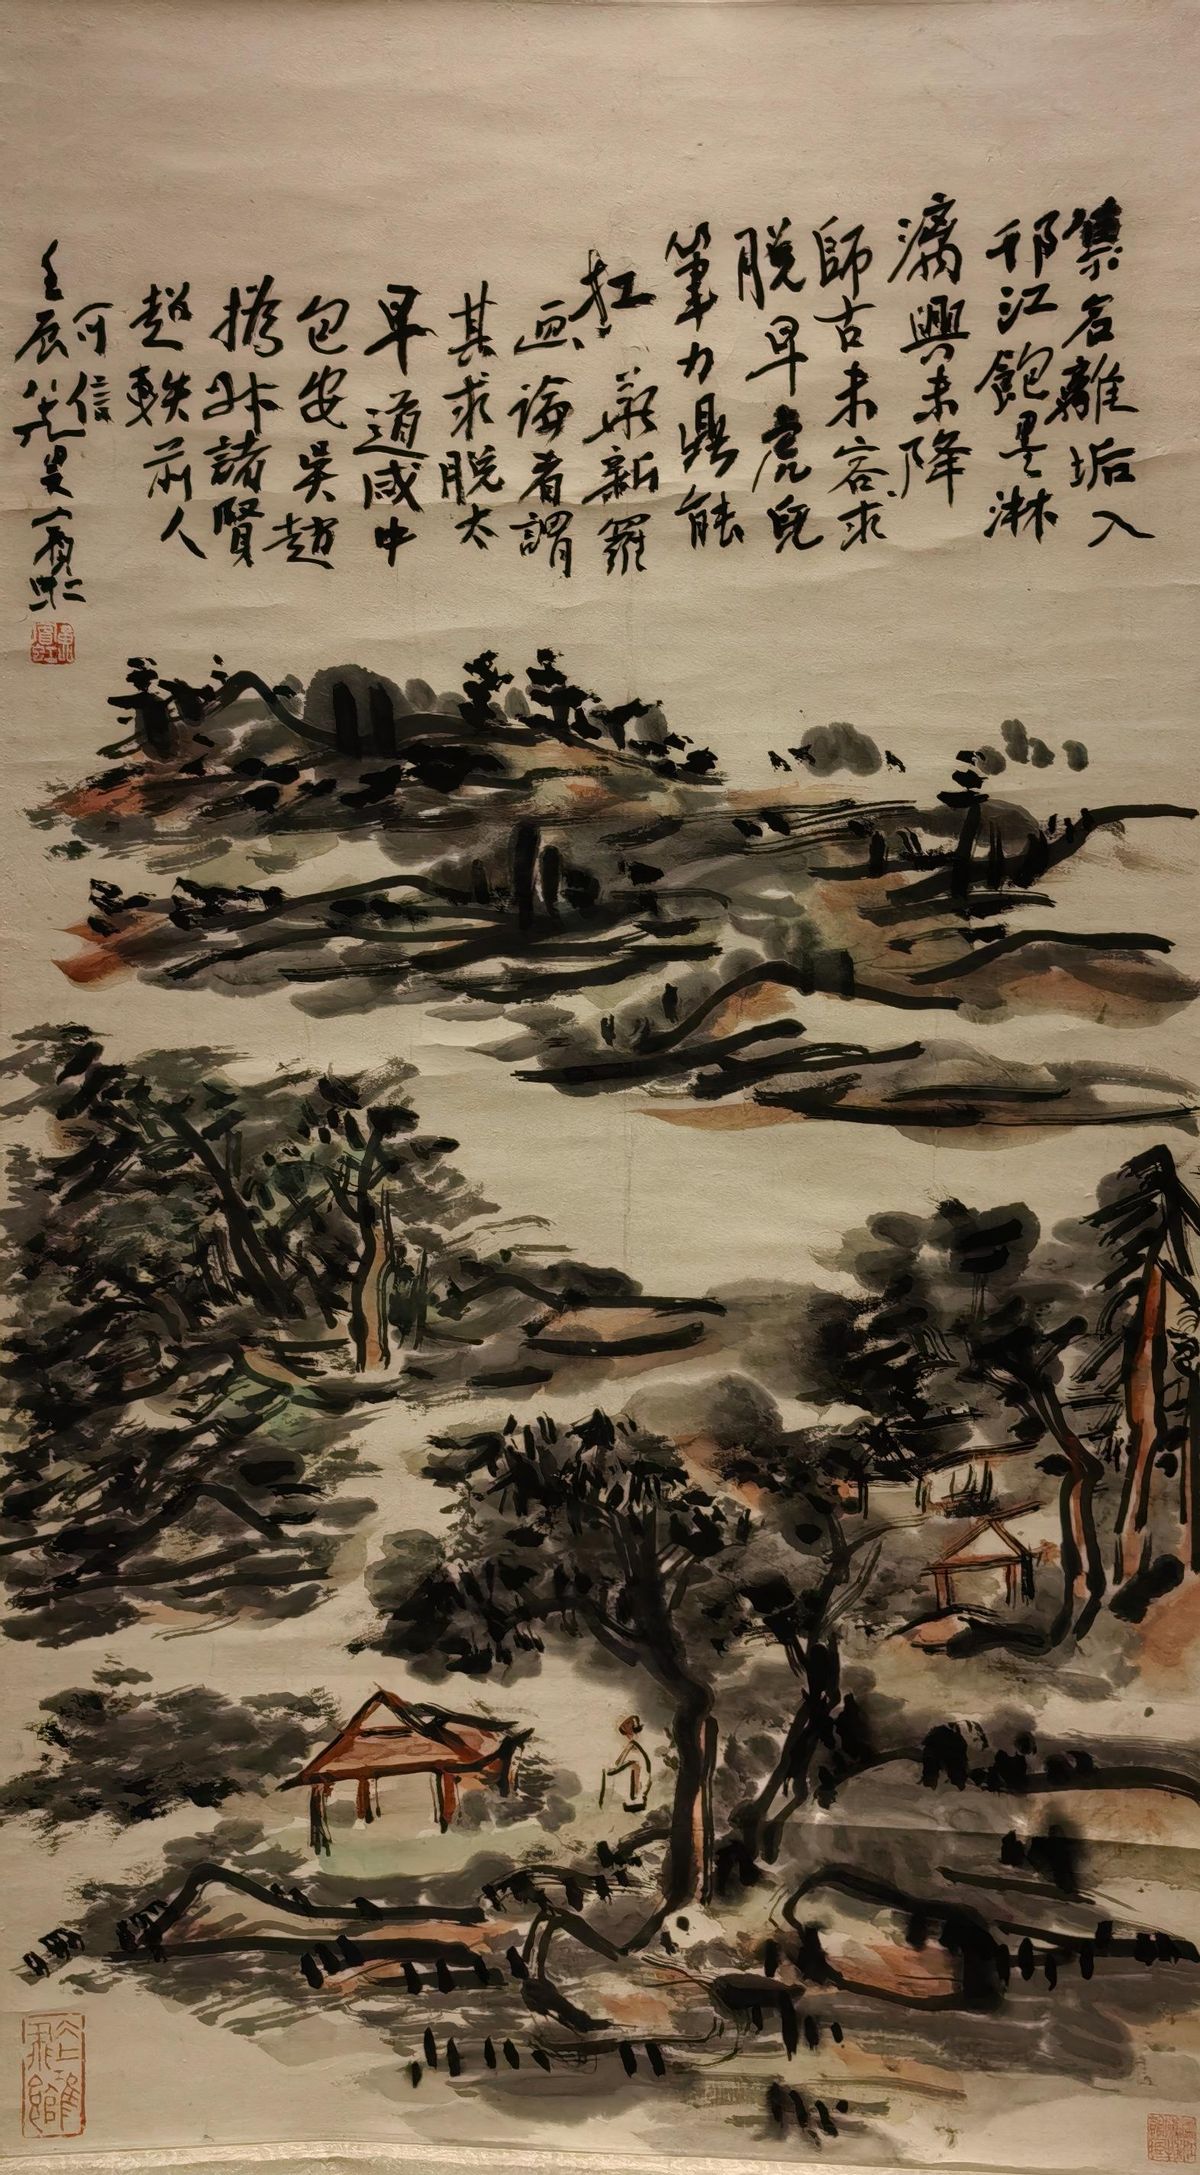 集名離垢入
邗江飽墨淋
漓興未降
師古未容求
脱早虎兒
筆力鼎能
扛 華新羅
畫論者謂
其求脱太
早道咸中
包安吳趙
撝叔諸賢
超軼前人
可信
壬辰八十九叟賓虹
黃賓虹